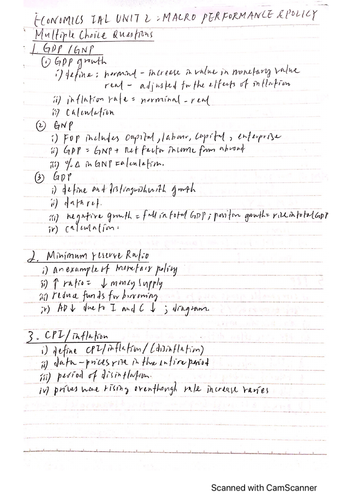 ECONOMICS IAL UNIT 2 : MACRO PERFORMANCE & POLICY
Multiple Choice Questions
1. GDP/GNP
① GDP growth
i) define : nominal - increase in value in monetary value
real - adjusted for the effects of inflation
ii) inflation rate = norminal - real
ii) calculation
② GNP
i) FOP includes capital, labour, capital, enterprise
ii) GDP = GNP + net factor income from abroad
iii) % Δ in GNP calculation.
③ GDP
i) define and distinguish with growth
ii) data ref.
iii) negative growth = fall in total GDP ; positive growth = rise in total GDP
iv) calculation.
2. Minimum reserve Ratio
i) an example of monetary policy
ii) ↑ ratio = ↓ money supply
iii) reduce funds for borrowing
iv) AD↓ due to I and C ↓ ; diagram.
3. CPI/inflation
i) define CPI/inflation/(disinflation)
ii) data - prices rise in the entire period
iii) period of disinflation.
iv) prices were rising eventhough rate increase varies
Scanned with CamScanner